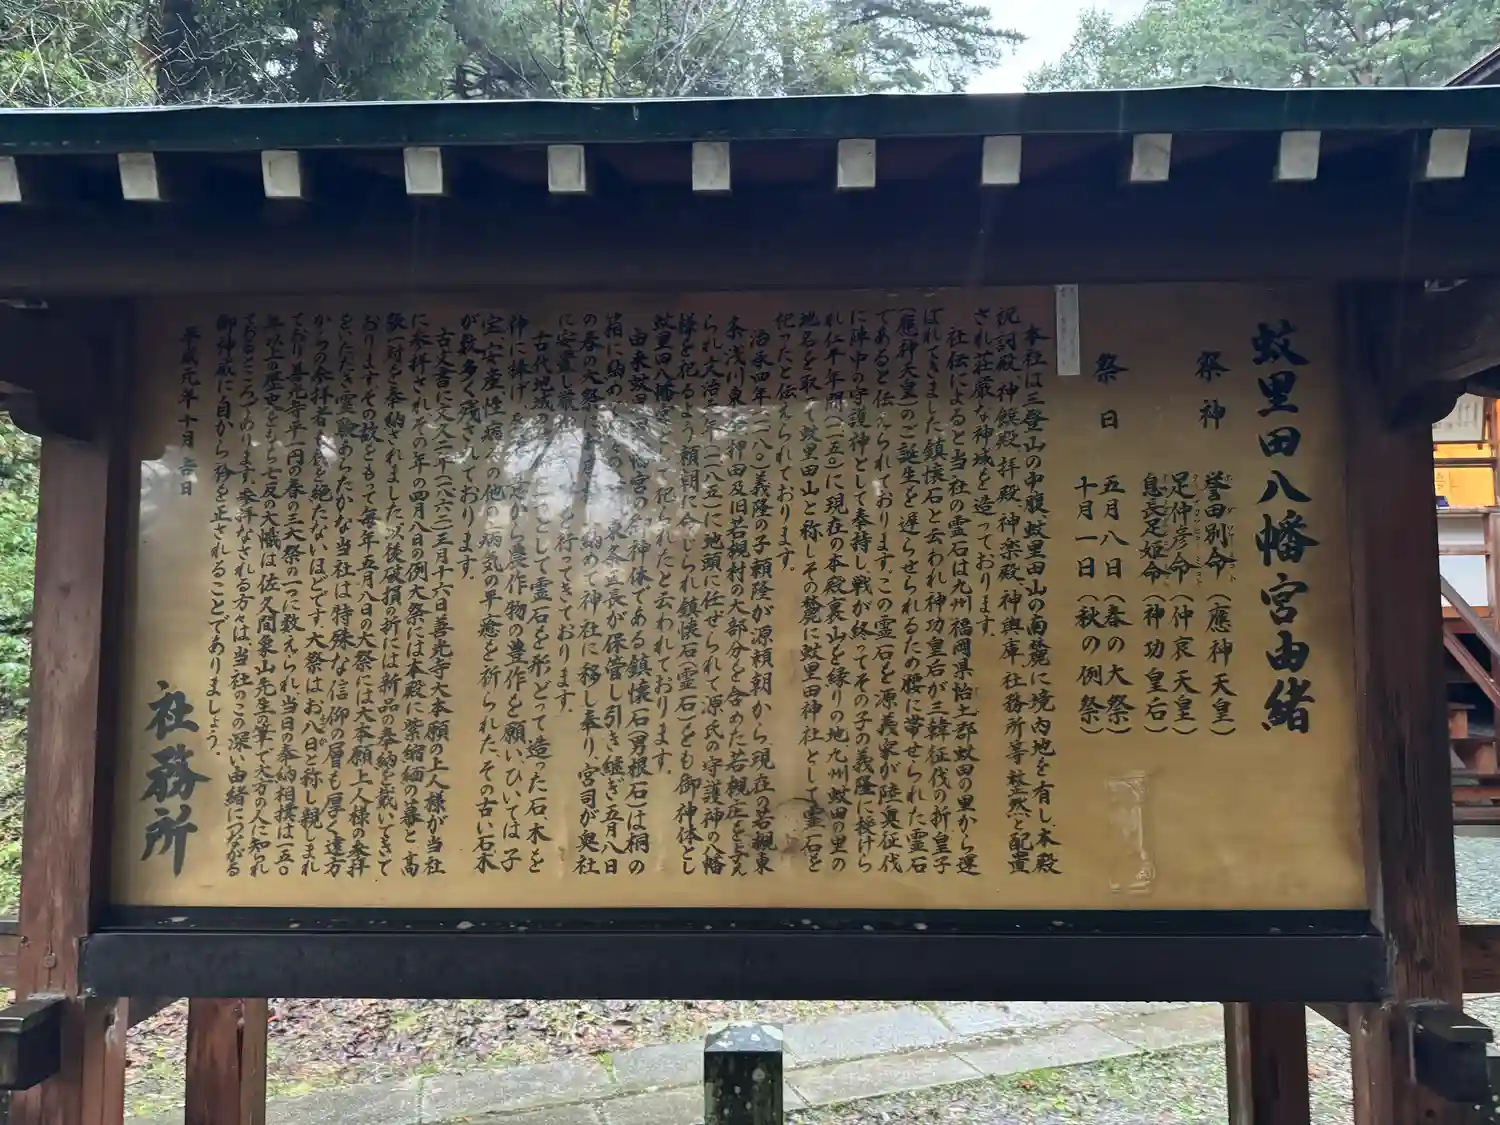 蚊里田八幡宮由緒
祭神
誉田別命（應神天皇）
足仲彦命（仲哀天皇）
息長足姫命（神功皇后）
祭日
五月八日（春の大祭）
十月一日（秋の例祭）
本社は三登山の中腹蚊里田山の南麓に境内地を有し本殿
祝詞殿、神饌殿、拝殿、神楽殿、神輿庫、社務所等整然と配置
され荘厳な神域を造っております。
社伝によると当社の霊石は九州福岡県怡土郡蚊田の里から運
ばれてきました鎮懐石と云われ神功皇后が三韓征伐の折皇子
（應神天皇）のご誕生を遅らせられるため腰に帯せられた霊石
であると伝えられております。この霊石を源義家が陸奥征伐
に陣中の守護神として奉持し戦が終ってその子の義隆に授けら
れ仁平年間（一一五〇）に現在の本殿裏山を縁りの地九州蚊田の里の
地名を取って蚊里田山と称しその麓に蚊里田神社として霊石を
祀ったと伝えられております。
治承四年（一一八〇）義隆の子頼隆が源頼朝から現在の若槻東
条、浅川東 押田及旧若槻村の大部分を含めた若槻庄を与え
られ文治元年（一一八五）に地頭に任せられて源氏の守護神の八幡
様を祀るよう頼朝に命じられ鎮懐石（霊石）をも御神体とし
蚊里田八幡宮 祀られたと云われております。
由来蚊里田八幡宮の御神体である鎮懐石（男根石）は桐の
箱に納め 東条益長が保管し引き継ぎ五月八日
の春の大祭 納めて神社に移し奉り、宮司が奥社
に安置し厳 と行ってきております。
古代地域の として霊石を形どって造った石木を
神に捧げ から農作物の豊作を願いひいては子
宝、安産、性病その他の病気の平癒を祈られた、その古い石木
が数多く残されております。
古文書に文久二年（一八六二）三月十六日善光寺大本願の上人様が当社
に参拝されその年の四月八日の例大祭には本殿に紫縮緬の幕と高
張一対をご奉納されました。以後破損の折には新品の奉納を戴いてきて
おります。その故をもって毎年五月八日の大祭には大本願上人様の参拝
をいただき霊験あらたかな当社は特殊な信仰の層も厚く遠方
からの参拝者も絶たないほどです。大祭はお八日と称し親しまれ
ており善光寺平一円の春の三大祭の一つに数えられ、当日の奉納相撲は一五〇
年以上の歴史をもち七反の大幟は佐久間象山先生の筆で大方の人に知られ
ておるところであります。参拝なされる方々は当社のこの深い由緒につながる
御神威に自から衿を正されることでありましょう。
平成元年十月吉日
社務所